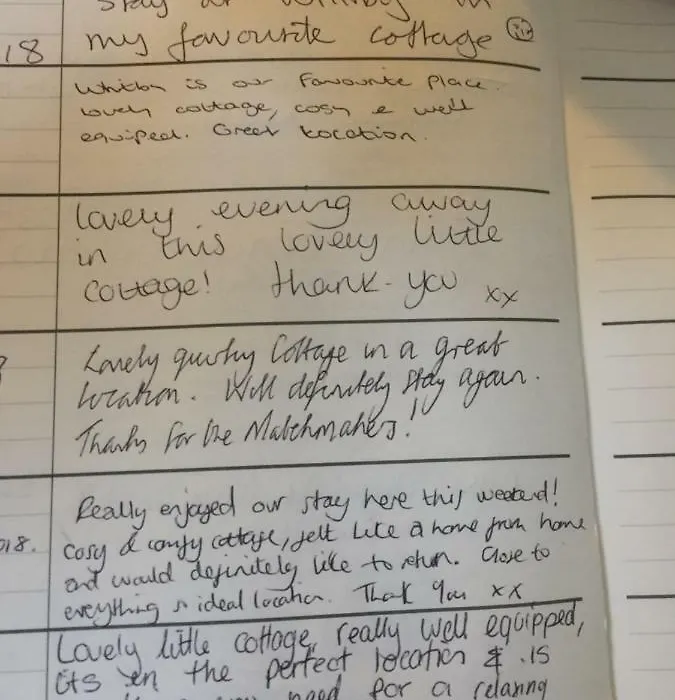 Stay at Whitby in
18 my favourite cottage
Whitby is our favourite place.
lovely cottage, cosy & well
equiped. Great Location.
lovely evening away
in this lovely little
cottage! thank-you xx
Lovely quirky Cottage in a great
location. Will definitely stay again.
Thanks for the Matchmakers!!
Really enjoyed our stay here this weekend!
018. cosy & comfy cottage, felt like a home from home
and would definitely like to return. Close to
everything in ideal location. Thank you xx
Lovely little cottage, really well equipped,
its in the perfect location & is
need for a relaxing